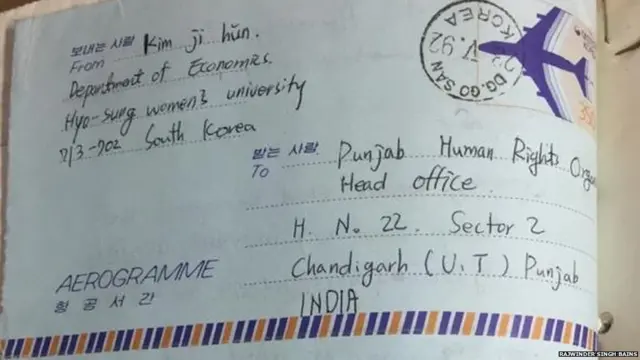 보내는 사람
From Kim ji hŭn.
Department of Economics.
Hyo-sung women's university
713-702 South Korea
DG. GO SAN
22. V. 92
KOREA
350
받는 사람
To Punjab Human Rights
Head office
H. No. 22. Sector 2
Chandigarh (U.T) Punjab
INDIA
AEROGRAMME
항공서간
RAJWINDER SINGH BAINS